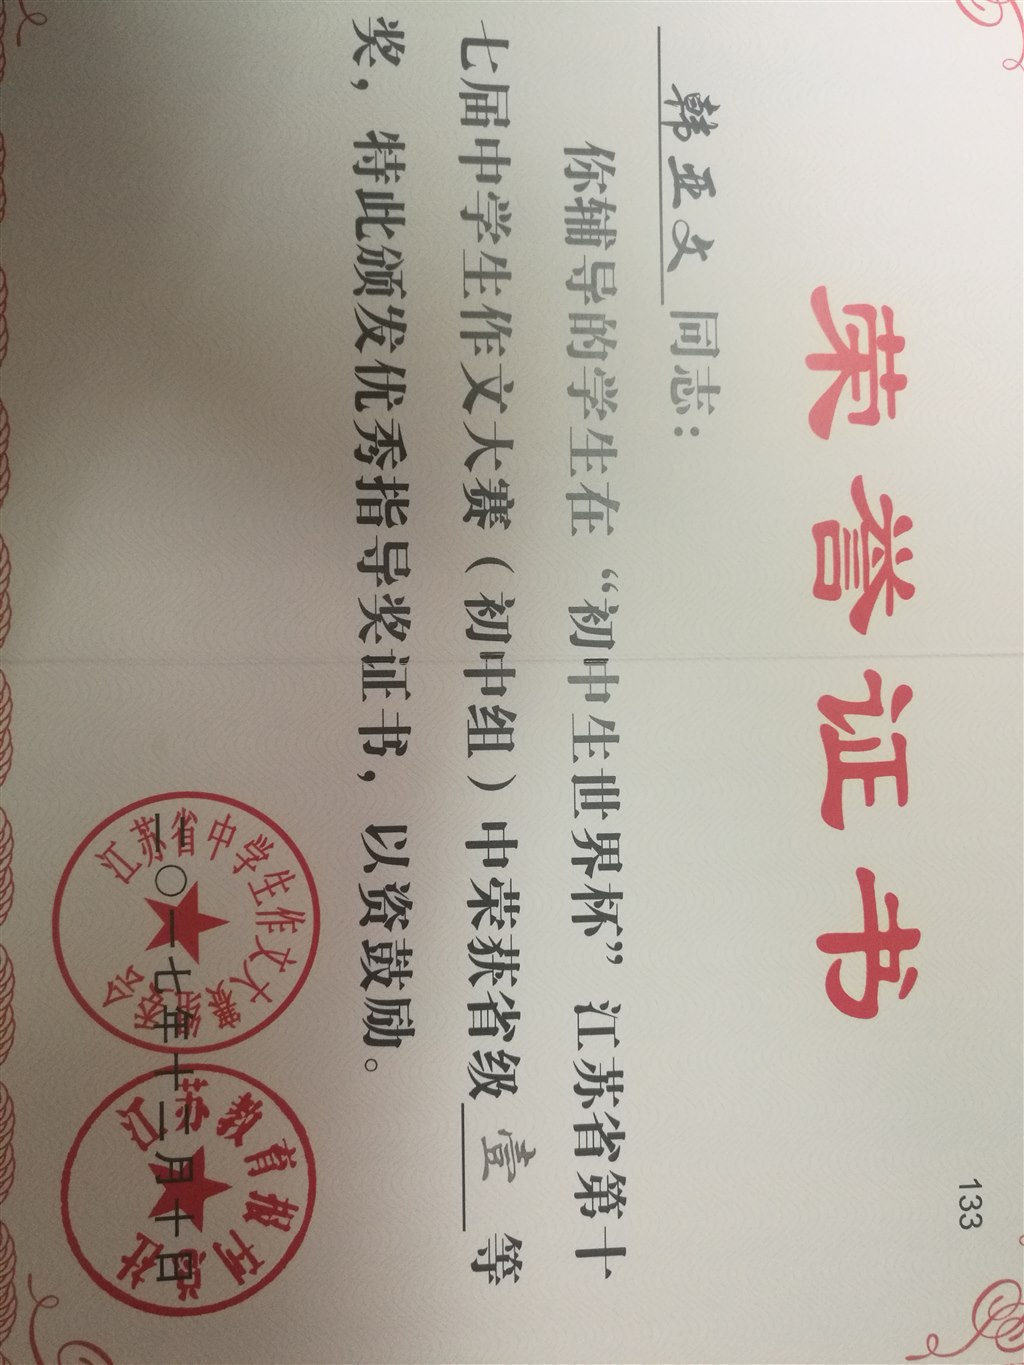 133
荣誉证书
韩亚文 同志：
你辅导的学生在“初中生世界杯”江苏省第十
七届中学生作文大赛（初中组）中荣获省级 壹 等
奖，特此颁发优秀指导奖证书，以资鼓励。
江苏省中学生作文大赛组委会
江苏教育报刊总社
二〇一七年十二月十日